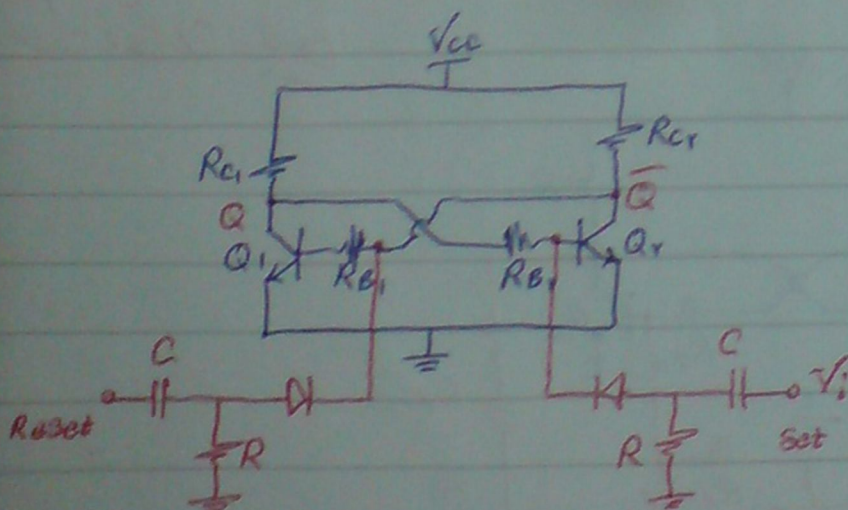 Vcc
RC1 RC2
Q Q̅
Q1 RB1 RB Q2
C C
Reset R R Vi
Set